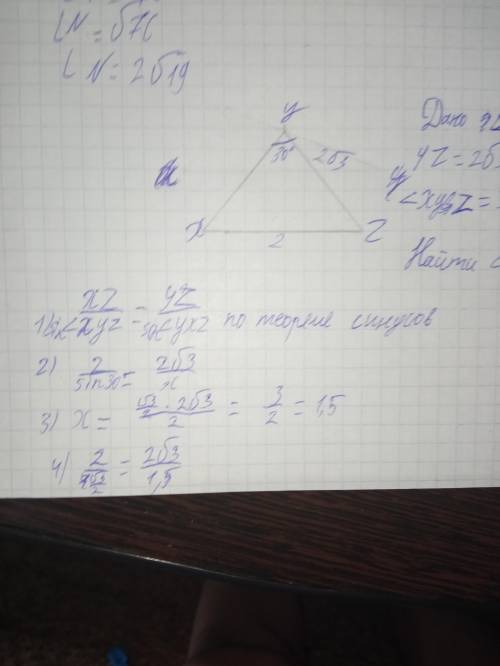 LN = √76
LN = 2√19
Дано
y
30°
2√3
YZ = 2√3
X
2
Z
y
<XYZ =
Найти
1) XZ / sin<XYZ = YZ / sin<YXZ по теореме синусов
2) 2 / sin30° = 2√3 / x
3) X = √3/2 · 2√3 / 2 = 3/2 = 1,5
4) 2 / √3/2 = 2√3 / 1,5